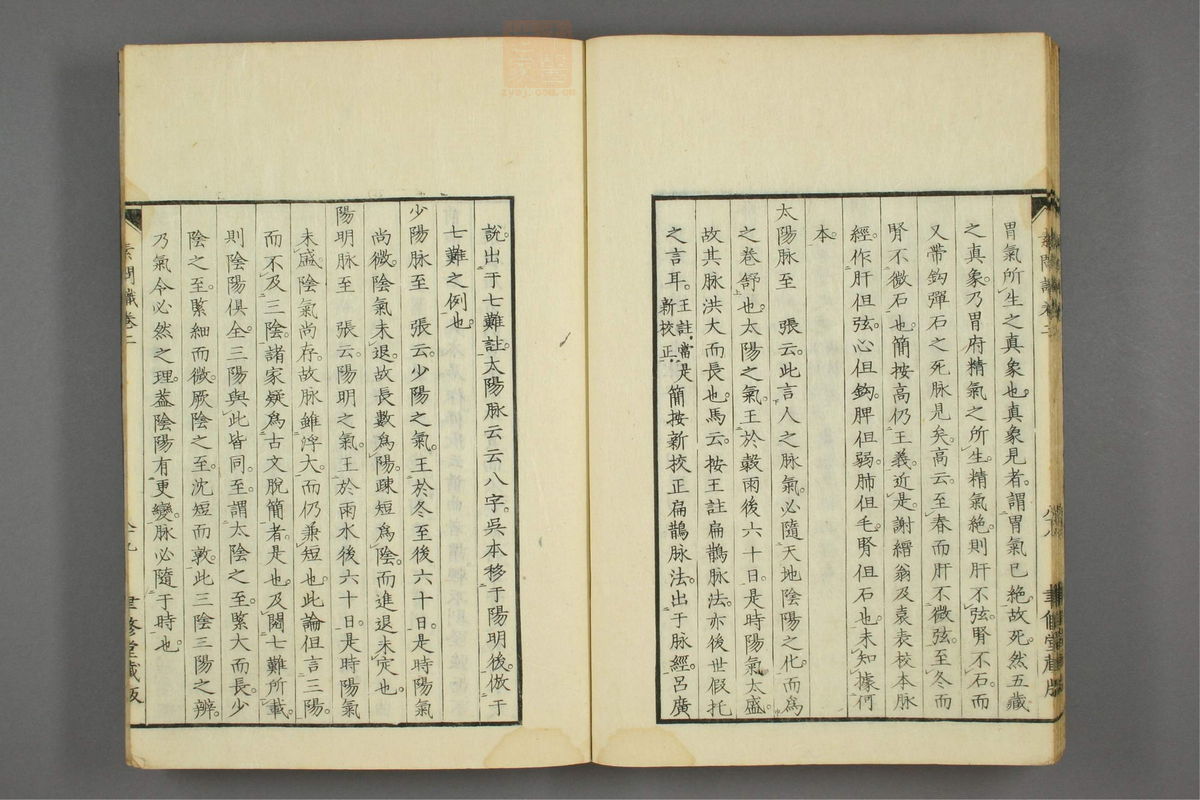 胃氣所生之真象也。真象見者。謂胃氣已絕。故死。然五藏
之真象。乃胃府精氣之所生。精氣絕則肝不弦。腎不石。而
又帶鈎彈石之死脉見矣。高云。至春而肝不微弦。至冬而
腎不微石也。簡按高仍王義。近是。謝縉翁及袁表校本脉
經。作肝但弦。心但鈎。脾但弱。肺但毛。腎但石也。未知據何
本。
太陽脉至　張云。此言人之脉氣。必隨天地陰陽之化。而爲
之卷舒也。太陽之氣。王於榖雨後六十日。是時陽氣太盛。
故其脉洪大而長也。馬云。按王註扁鵲脉法。亦後世假托
之言耳。王註。當是新校正。簡按新挍正扁鵲脉法。出于脉經。呂廣
說。出于七難註。太陽脉云云八字。吳本移于陽明後。倣于
七難之例也。
少陽脉至　張云。少陽之氣。王於冬至後六十日。是時陽氣
尚微。陰氣未退。故長數爲陽。疎短爲陰。而進退未定也。
陽明脉至　張云。陽明之氣。王於雨水後六十日。是時陽氣
未盛。陰氣尚存。故脉雖浮大。而仍兼短也。此論但言三陽。
而不及三陰。諸家疑爲古文脫簡者。是也。及閱七難所載。
則陰陽俱全。三陽與此皆同。至謂太陰之至。緊大而長。少
陰之至。緊細而微。厥陰之至。沈短而敦。此三陰三陽之辨。
乃氣令必然之理。蓋陰陽有更變。脉必隨于時也。
素問識卷二
聿修堂藏版